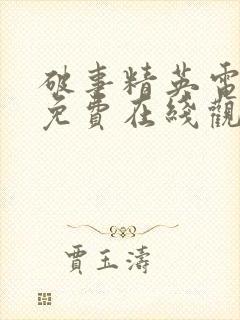 破事精英電
免費在綫觀
賈玉濤